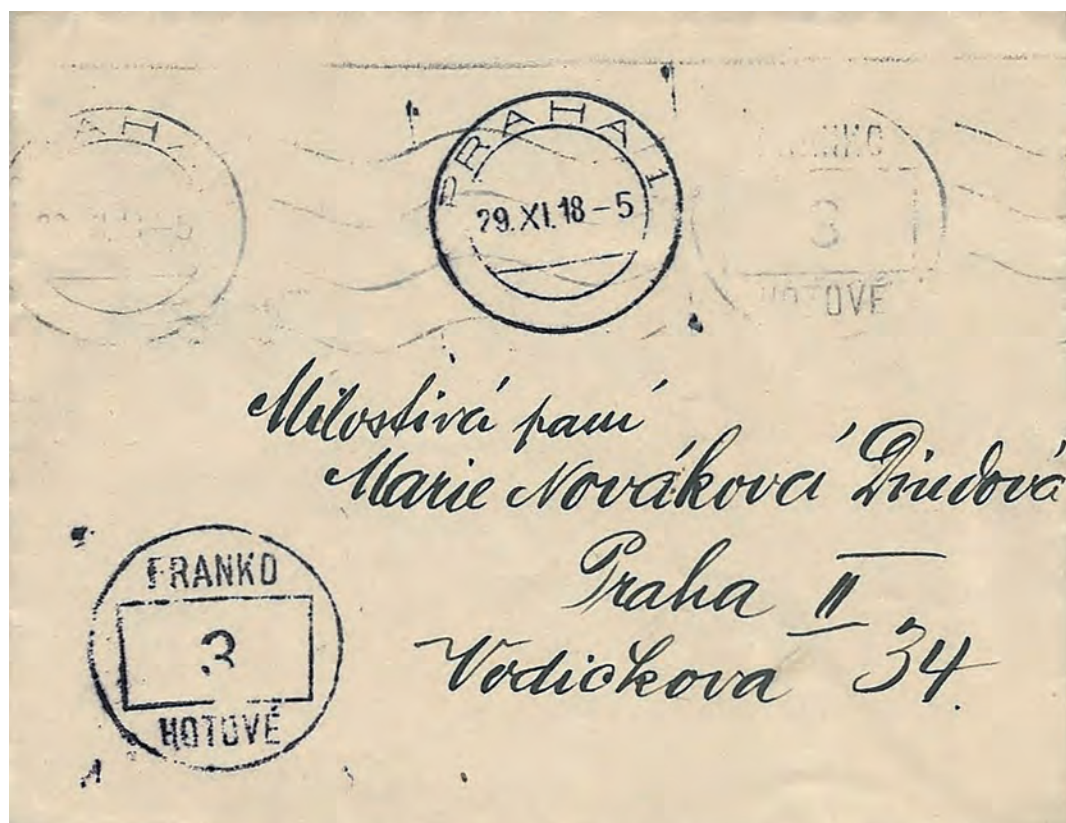 PRAHA 1
29. XI. 18-5
FRANKO
3
HOTOVÉ
Milostivá paní
Marie Nováková
Praha II
Vodičkova 34.
FRANKO
3
HOTOVÉ